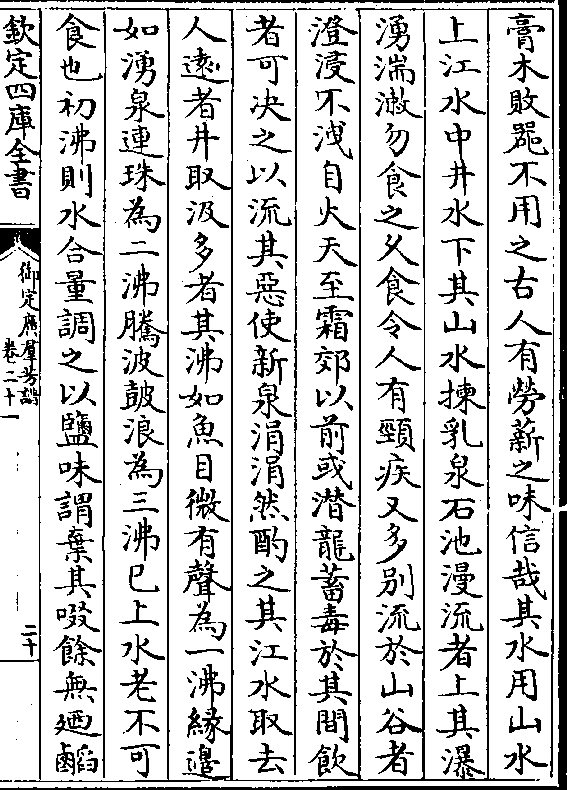 膏木敗噐不用之古人有勞薪之味信哉其水用山水
上江水中井水下其山水揀乳泉石池漫流者上其瀑
湧湍潄勿食之乆食令人有頸疾又多別流於山谷者
澄浸不洩自火天至霜郊以前或潜龍蓄毒於其間飲
者可决之以流其惡使新泉涓涓然酌之其江水取去
人逺者井取汲多者其沸如魚目微有聲為一沸縁邊
如湧泉連珠為二沸騰波皷浪為三沸已上水老不可
食也初沸則水合量調之以鹽味謂棄其啜餘無迺䤘
欽定四庫全書
御定廣羣芳譜
卷二十一
二十